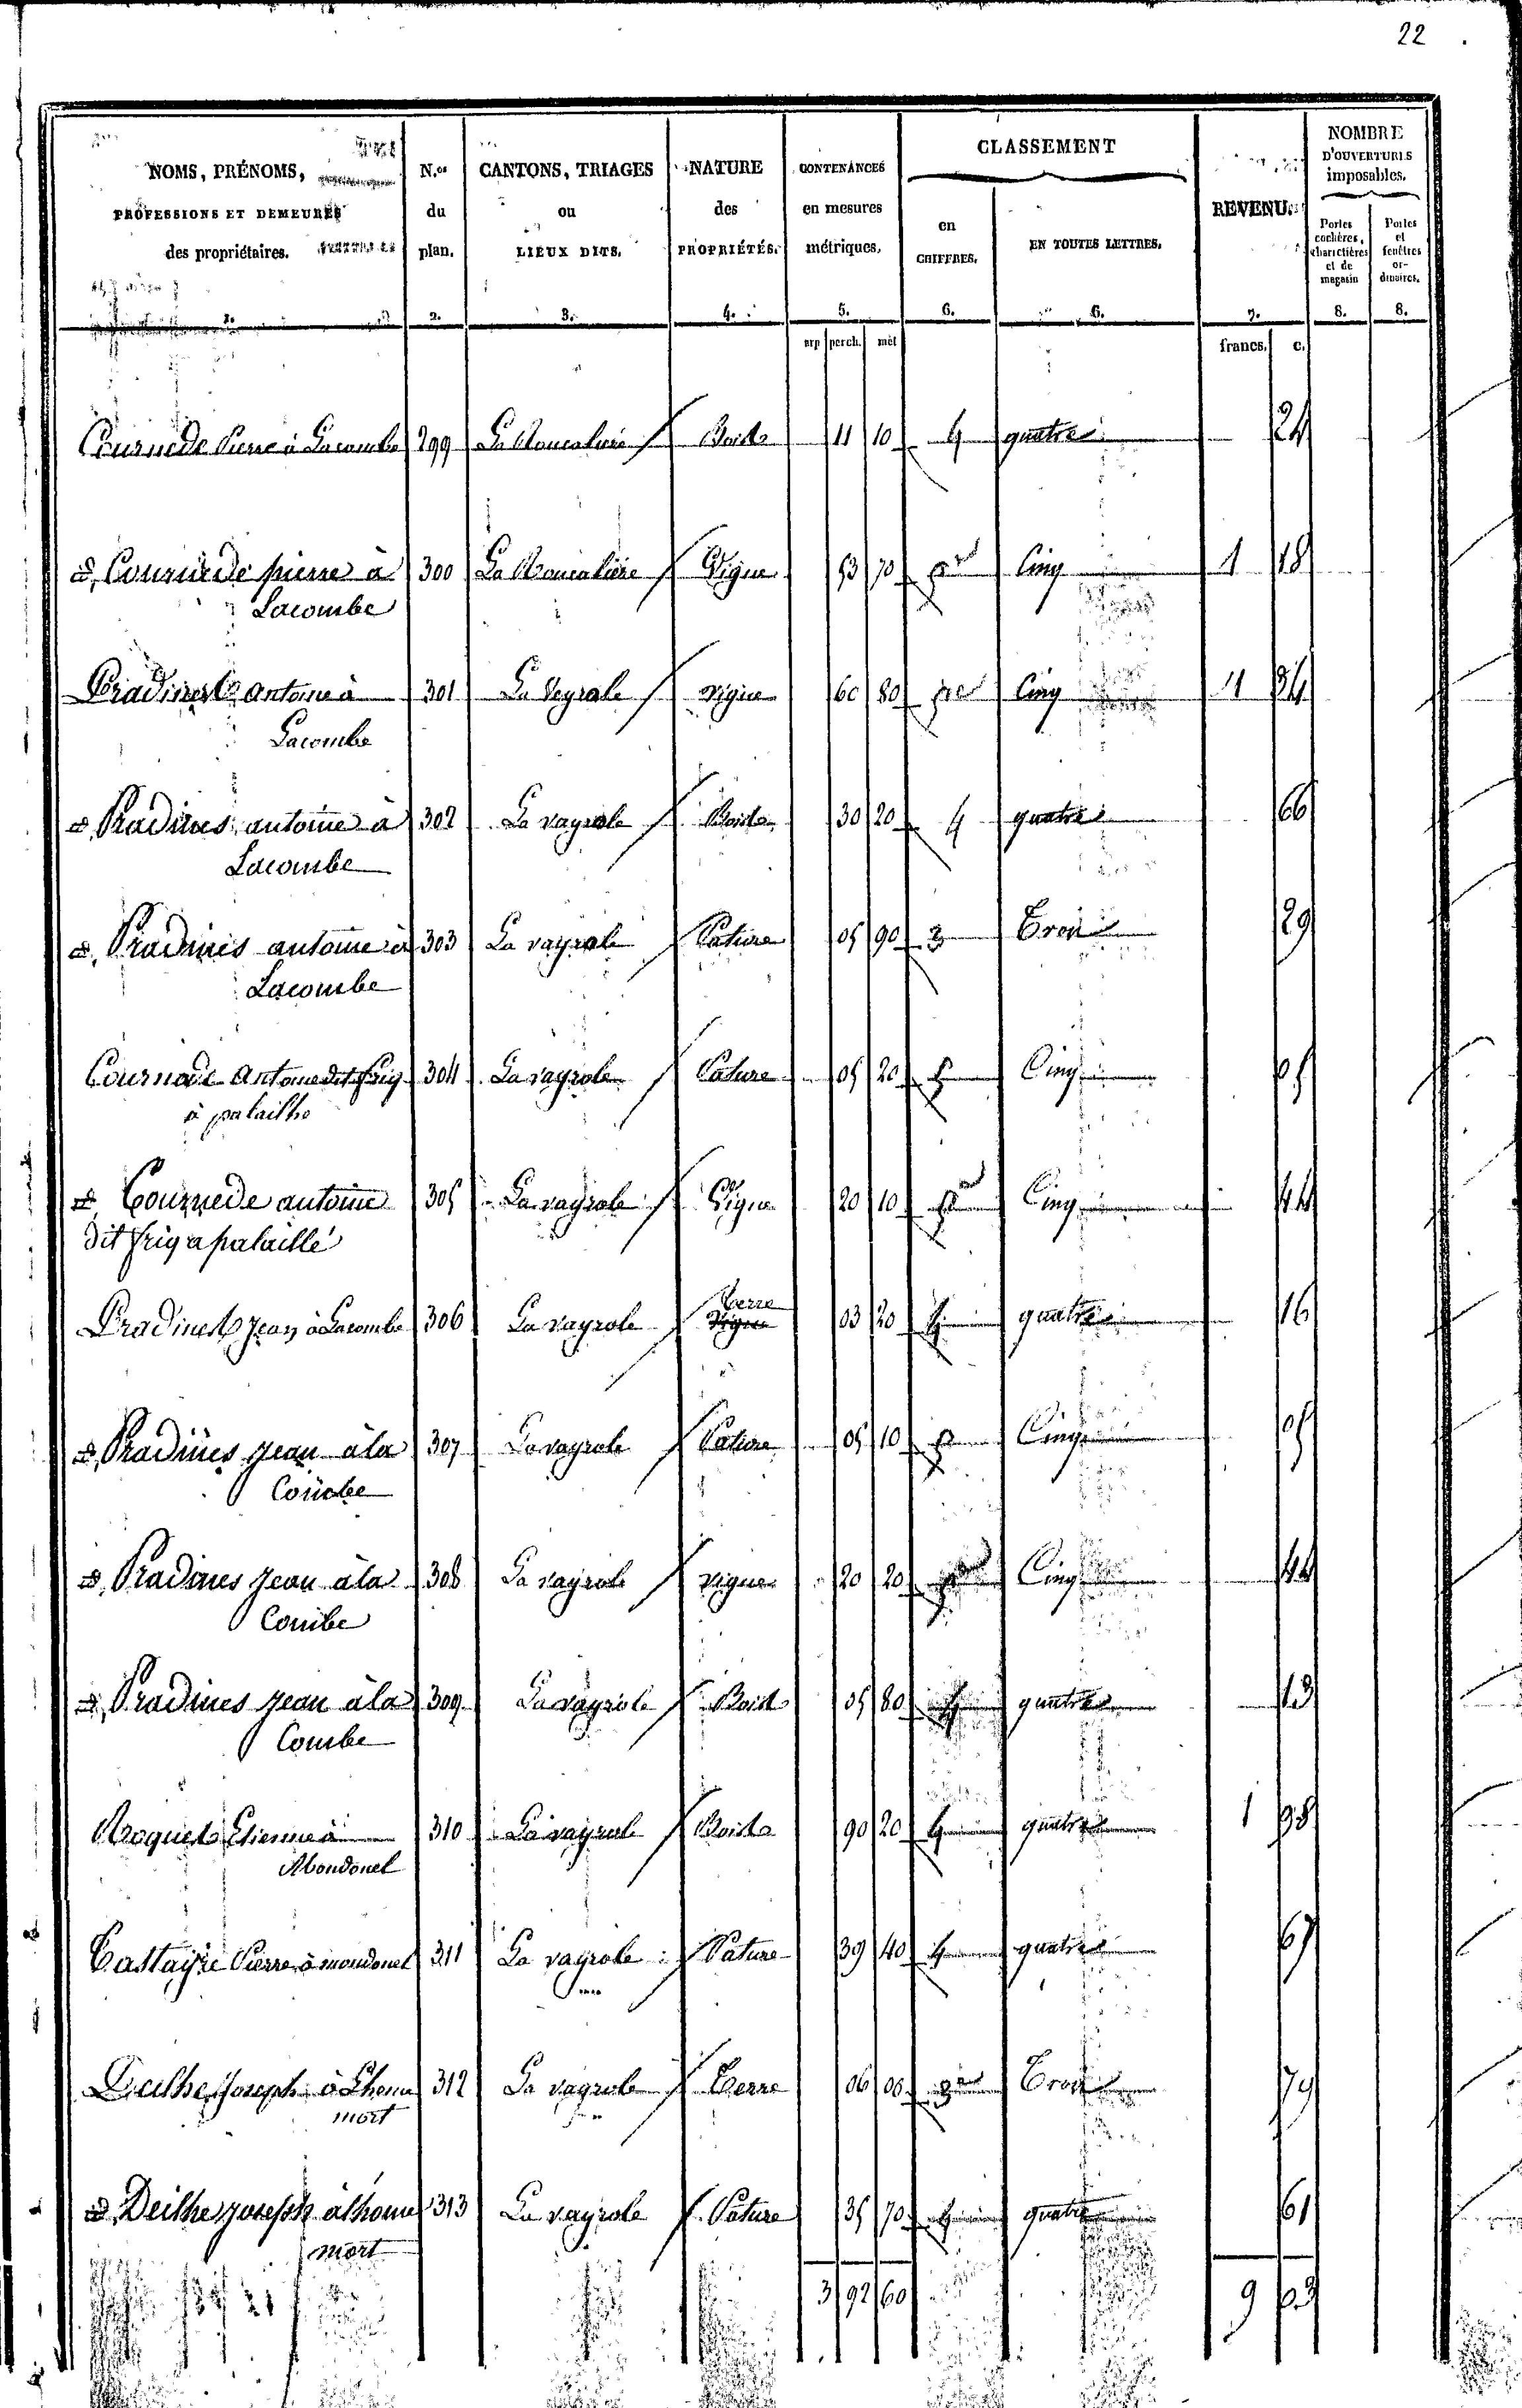 22
NOMS, PRÉNOMS,
PROFESSIONS ET DEMEURES
des propriétaires.
1.
N.os
du
plan.
2.
CANTONS, TRIAGES
ou
LIEUX DITS.
3.
NATURE
des
PROPRIÉTÉS.
4.
CONTENANCES
en mesures
métriques,
5.
arp perch. mèt
CLASSEMENT
en
CHIFFRES.
6.
EN TOUTES LETTRES.
6.
REVENU.
7.
francs. c.
NOMBRE
D'OUVERTURES
imposables.
Portes
cochères,
charretières
et de
magasin
8.
Portes
et
fenêtres
or-
dinaires.
8.
Cournede Pierre à Lacombe 299 La Bois 11 10 4 quatre 24
d. Cournede pierre à 300 La Vigne 53 70 Cinq 1 18
Lacombe
Pradines antoine à 301 La Veyrole vigne 60 80 Cinq 1 34
Lacombe
d. Pradines antoine à 302 La vayrole Bois 30 20 4 quatre 66
Lacombe
d. Pradines antoine à 303 La vayrole Pature 05 90 3 Trois 29
Lacombe
Cournede Antoine dit frig 304 La vayrole Pature 05 20 5 Cinq 05
à palaille
d. Cournede antoine 305 La vayrole Vigne 20 10 Cinq 44
dit frig a palaille
Pradines Jean à Lacombe 306 La vayrole Terre 03 20 4 quatre 16
d. Pradines jean à la 307 La vayrole Pature 05 10 5 Cinq 05
Combe
d. Pradines jean à la 308 La vayrole vigne 20 20 Cinq 44
Combe
d. Pradines jean à la 309 La vayrole Bois 05 80 4 quatre 13
Combe
Etienne à 310 La vayrole Bois 90 20 4 quatre 1 98
Mondonel
Castaype Pierre à mondonel 311 La vayrole Pature 39 40 4 quatre 67
Deilhe Joseph à Lhom 312 La vayrole Terre 06 00 Trois 79
mort
d. Deilhe joseph à lhom 313 La vayrole Pature 35 70 4 quatre 61
mort
3 92 60 9 03